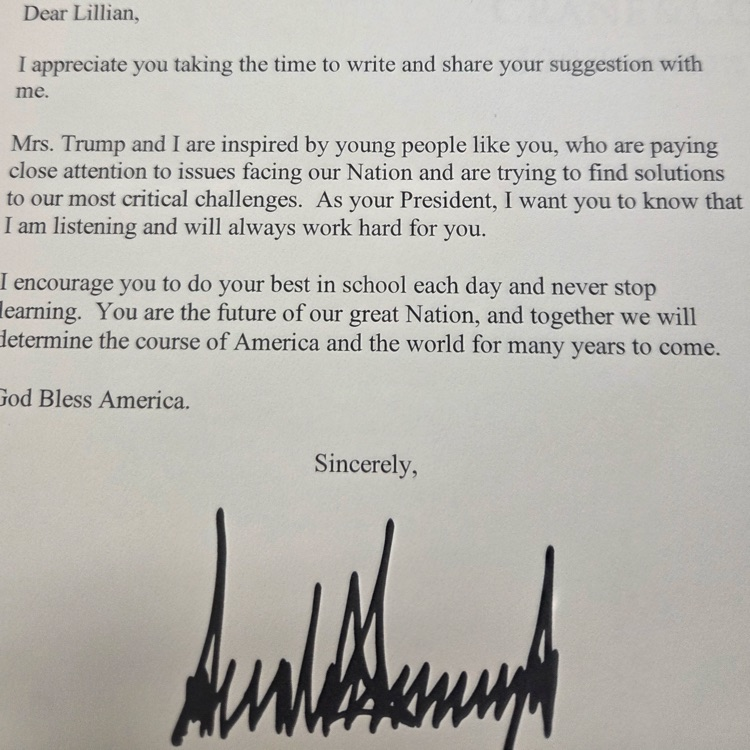 Dear Lillian,
I appreciate you taking the time to write and share your suggestion with
me.
Mrs. Trump and I are inspired by young people like you, who are paying
close attention to issues facing our Nation and are trying to find solutions
to our most critical challenges.  As your President, I want you to know that
I am listening and will always work hard for you.
I encourage you to do your best in school each day and never stop
learning.  You are the future of our great Nation, and together we will
determine the course of America and the world for many years to come.
God Bless America.
Sincerely,